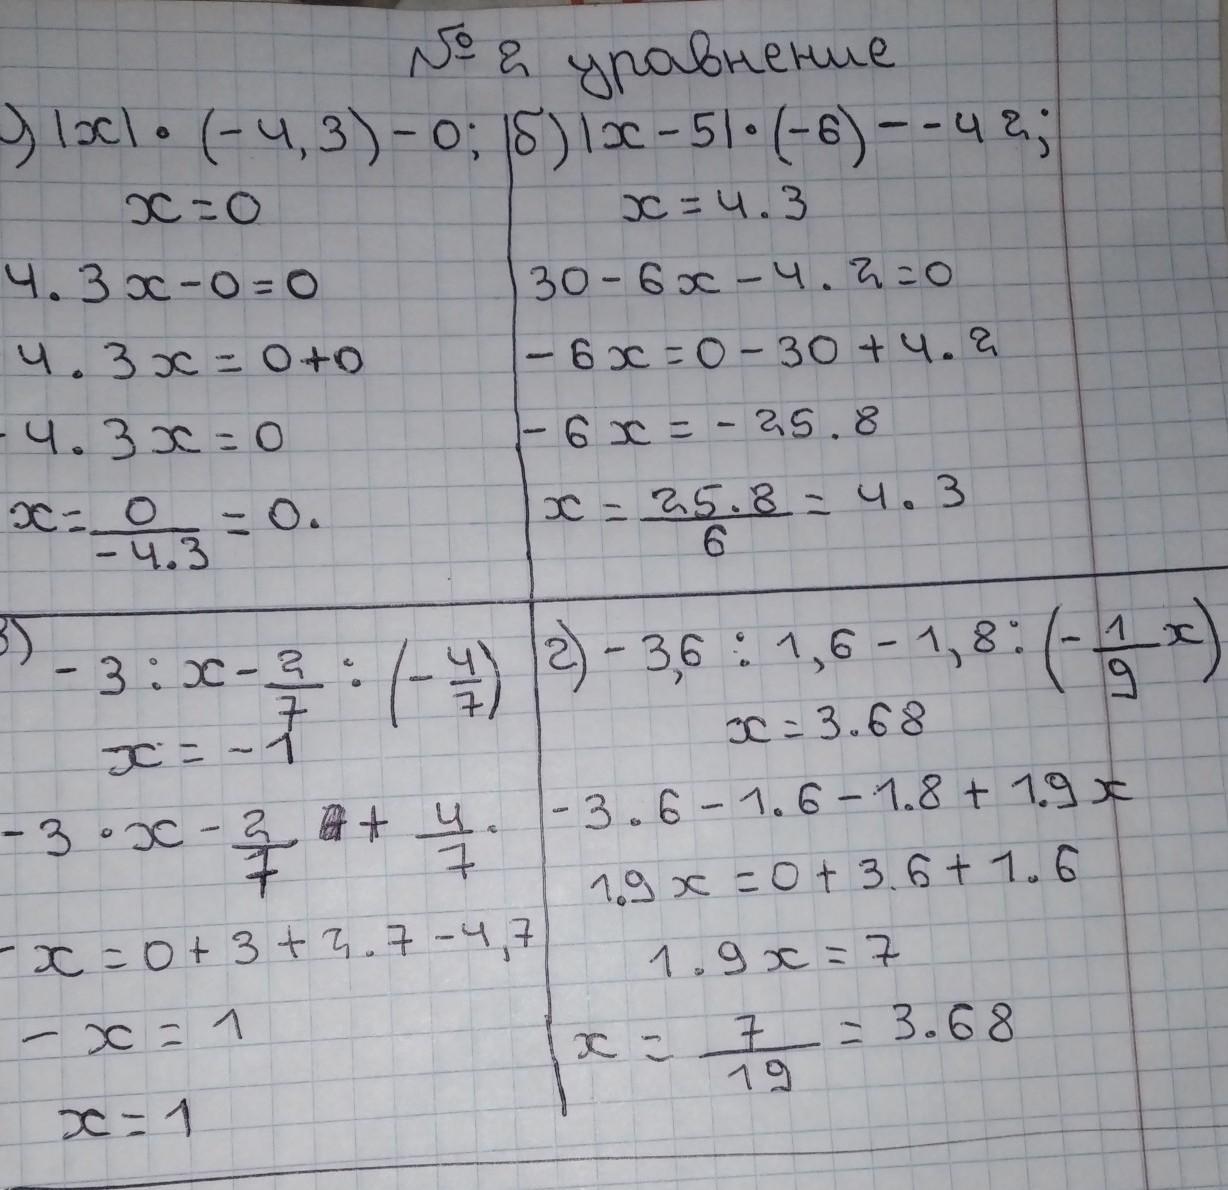 № 2 уравнение
а) |x| • (-4,3) - 0;
x = 0
4.3x - 0 = 0
4.3x = 0+0
-4.3x = 0
x = 0/-4.3 = 0.
б) |x - 5| • (-6) - -42;
x = 4.3
30 - 6x - 4.2 = 0
-6x = 0 - 30 + 4.2
-6x = -25.8
x = 25.8/6 = 4.3
в) -3 : x - 2/7 : (-4/7)
x = -1
-3 • x - 2/7 + 4/7.
-x = 0 + 3 + 2.7 - 4,7
-x = 1
x = 1
г) -3,6 : 1,6 - 1,8 : (-1/9 x)
x = 3.68
-3.6 - 1.6 - 1.8 + 1.9x
1.9x = 0 + 3.6 + 1.6
1.9x = 7
x = 7/19 = 3.68